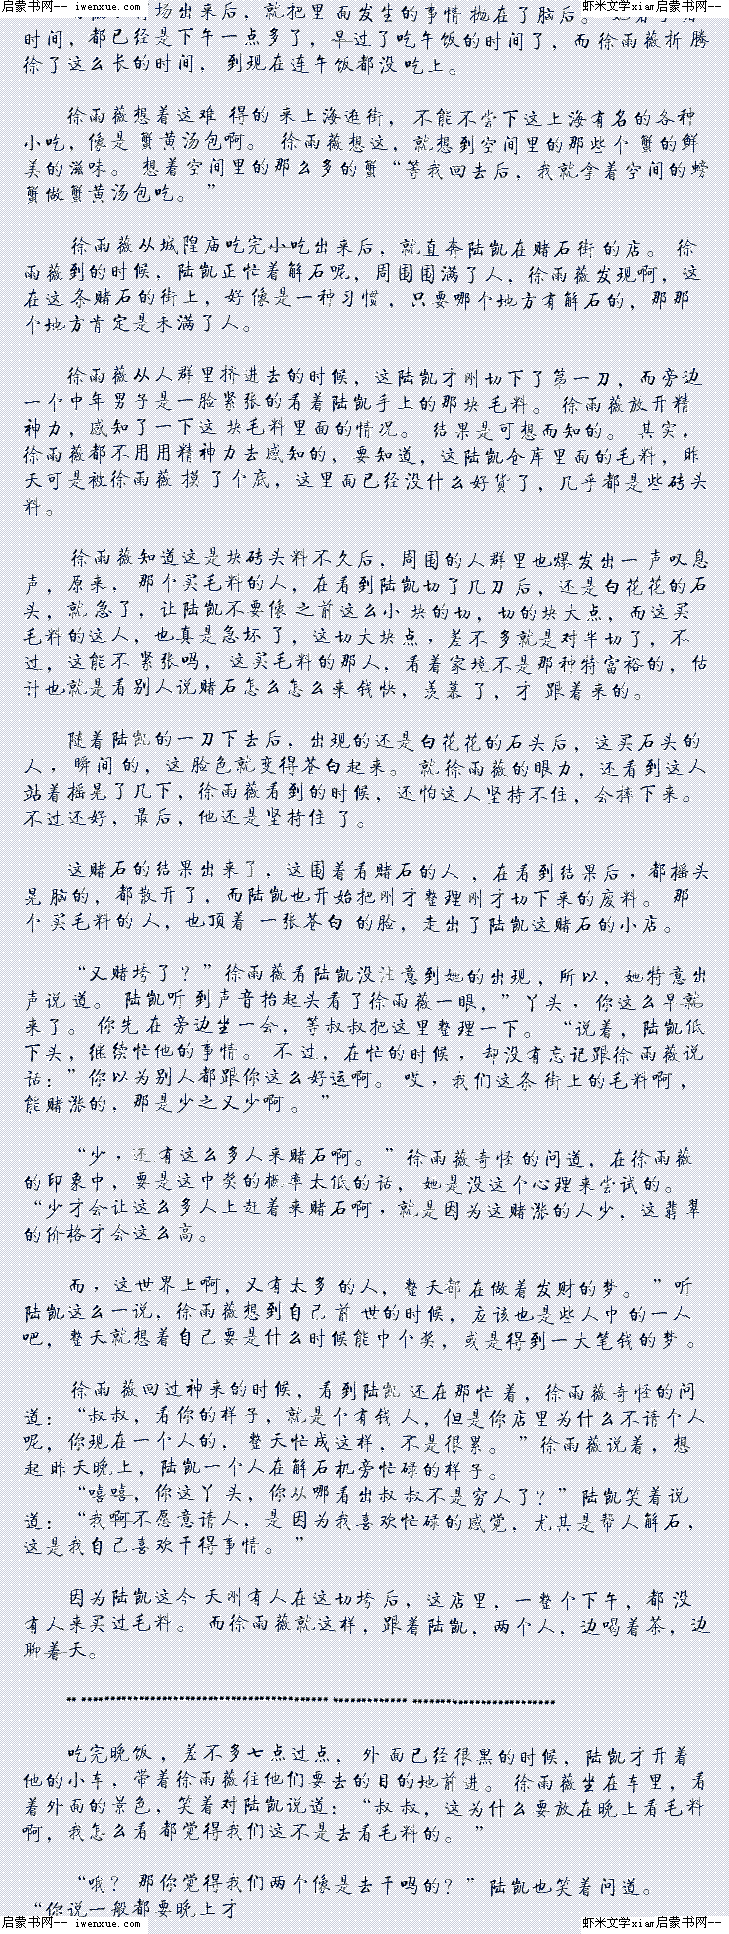 启蒙书网-- iwenxue.com 虾米文学xiam启蒙书网--
场出来后，就把里面发生的事情抛在了脑后。
时间，都已经是下午一点多了，早过了吃午饭的时间了，而徐雨薇折腾
徐了这么长的时间， 到现在连午饭都没吃上。
徐雨薇想着这难 得的 来上海逛街， 不能不尝下这上海有名的各种
小吃，像是 蟹黄汤包啊。 徐雨薇想这，就想到空间里的那些个 蟹的鲜
美的滋味。 想着空间里的那么多的蟹“等我回去后，我就拿着空间的螃
蟹做蟹黄汤包吃。”
徐雨薇从城隍庙吃完小吃出来后，就直奔陆凯在赌石街的店。 徐
雨薇到的时候，陆凯正忙着解石呢，周围围满了人，徐雨薇发现啊，这
在这条赌石的街上，好像是一种习惯，只要哪个地方有解石的，那那
个地方肯定是未满了人。
徐雨薇从人群里挤进去的时候，这陆凯才刚切下了第一刀，而旁边
一个中年男子是一脸紧张的看着陆凯手上的那块毛料。 徐雨薇放开精
神力，感知了一下这 块毛料里面的情况。 结果是可想而知的。 其实，
徐雨薇都不用用精神力去感知的，要知道，这陆凯仓库里面的毛料，昨
天可是被徐雨薇 摸了个底，这里面已经没什么好货了，几乎都是些砖头
料。
徐雨薇知道这是块砖头料不久后，周围的人群里也爆发出一声叹息
声，原来， 那个买毛料的人，在看到陆凯切了几刀后，还是白花花的石
头，就急了，让陆凯不要像之前这么小块的切，切的块大点，而这买
毛料的这人，也真是急坏了，这切大块点，差不多就是对半切了，不
过，这能不 紧张吗， 这买毛料的那人，看着家境不是那种特富裕的，估
计也就是看别人说赌石怎么怎么来钱快，羡慕了，才 跟着来的。
随着陆凯的一刀下去后，出现的还是白花花的石头后，这买石头的
人，瞬间的，这脸色就变得苍白起来。 就徐雨薇的眼力，还看到这人
站着摇晃了几下，徐雨薇看到的时候，还怕这人坚持不住，会摔下来。
不过还好，最后，他还是坚持住了。
这赌石的结果出来了，这围着看赌石的人，在看到结果后，都摇头
晃脑的，都散开了，而陆凯也开始把刚才整理刚才切下来的废料。 那
个买毛料的人，也顶着 一张苍白 的脸，走出了陆凯这赌石的小店。
“又赌垮了？”徐雨薇看陆凯没注意到她的出现，所以，她特意出
声说道。 陆凯听到声音抬起头看了徐雨薇一眼，”丫头，你这么早就
来了。 你先在 旁边坐一会，等叔叔把这里整理一下。 “说着，陆凯低
下头，继续忙他的事情。 不过，在忙的时候，却没有忘记跟徐雨薇说
话：”你以为别人都跟你这么好运啊。 哎，我们这条街上的毛料啊，
能赌涨的，那是少之又少啊。”
“少，还有这么多人来赌石啊。 ”徐雨薇奇怪的问道，在徐雨薇
的印象中，要是这中奖的概率太低的话， 她是没这个心理来尝试的。
“少才会让这么多人上赶着来赌石啊，就是因为这赌涨的人少，这翡翠
的价格才会这么高。
而，这世界上啊，又有太多 的人，整天都在做着发财的梦。”听
陆凯这么一说，徐雨薇想到自己前世的时候，应该也是些人中的一人
吧，整天就想着自己要是什么时候能中个奖，或是得到一大笔钱的梦。
徐雨薇回过神来的时候，看到陆凯还在那忙着，徐雨薇奇怪的问
道：“叔叔，看你的样子，就是个有钱人，但是你店里为什么不请个人
呢，你现在一个人的， 整天忙成这样，不是很累。 ”徐雨薇说着，想
起昨天晚上，陆凯一个人在解石机旁忙碌的样子。
“嘻嘻，你这丫头，你从哪看出叔叔不是穷人了？”陆凯笑着说
道：“我啊不愿意请人，是因为我喜欢忙碌的感觉，尤其是帮人解石，
这是我自己喜欢干得事情。”
因为陆凯这今天刚有人在这切垮后，这店里，一整个下午，都没
有人来买过毛料。 而徐雨薇就这样，跟着陆凯，两个人，边喝着茶，边
聊着天。
吃完晚饭，差不多七点过点， 外面已经很黑的时候，陆凯才开着
他的小车，带着徐雨薇往他们要去的目的地前进。 徐雨薇坐在车里，看
着外面的景色，笑着对陆凯说道：“叔叔，这为什么要放在晚上看毛料
啊，我怎么看都觉得我们这不是去看毛料的。”
“哦？ 那你觉得我们两个像是去干吗的？”陆凯也笑着问道。
“你说一般都要晚上才
启蒙书网-- iwenxue.com 虾米文学xiam启蒙书网--